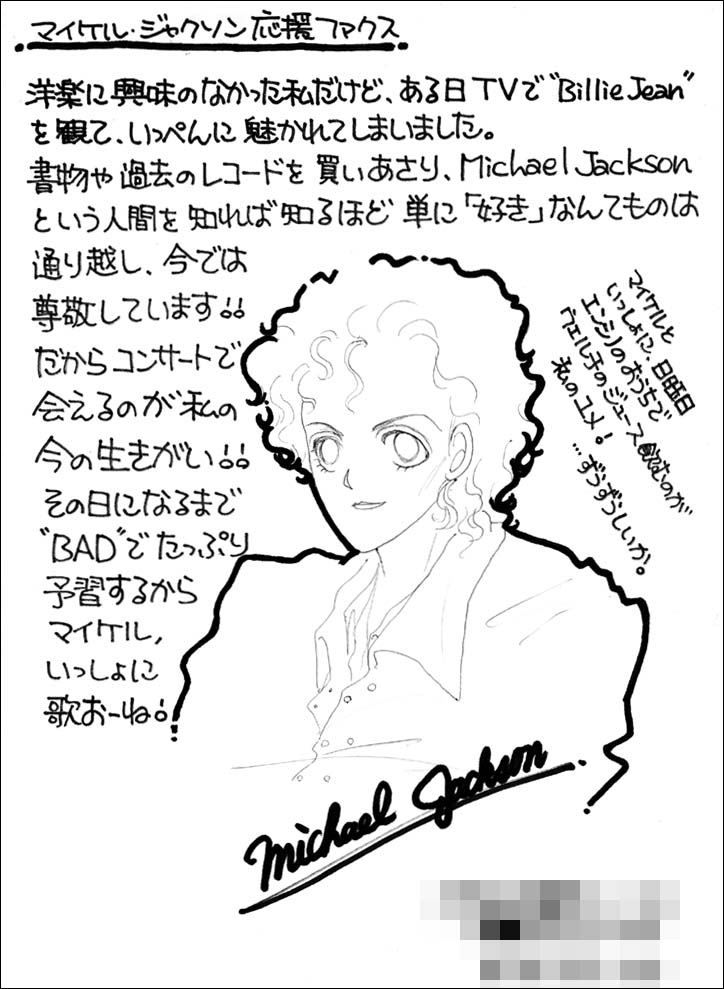 マイケル・ジャクソン応援ファクス
洋楽に興味のなかった私だけど、ある日TVで"Billie Jean"
を観て、いっぺんに魅かれてしまいました。
書物や過去のレコードを買いあさり、Michael Jackson
という人間を知れば知るほど単に「好き」なんてものは
通り越し、今では
尊敬しています!!
だからコンサートで
会えるのが私の
今の生きがい!!
その日になるまで
"BAD"でたっぷり
予習するから
マイケル,
いっしょに
歌おーね!
マイケルと
いっしょに、日曜日
エンシノのおうちで
ウェルチのジュース飲むのが
私のユメ!
…ずうずうしいか。
Michael Jackson